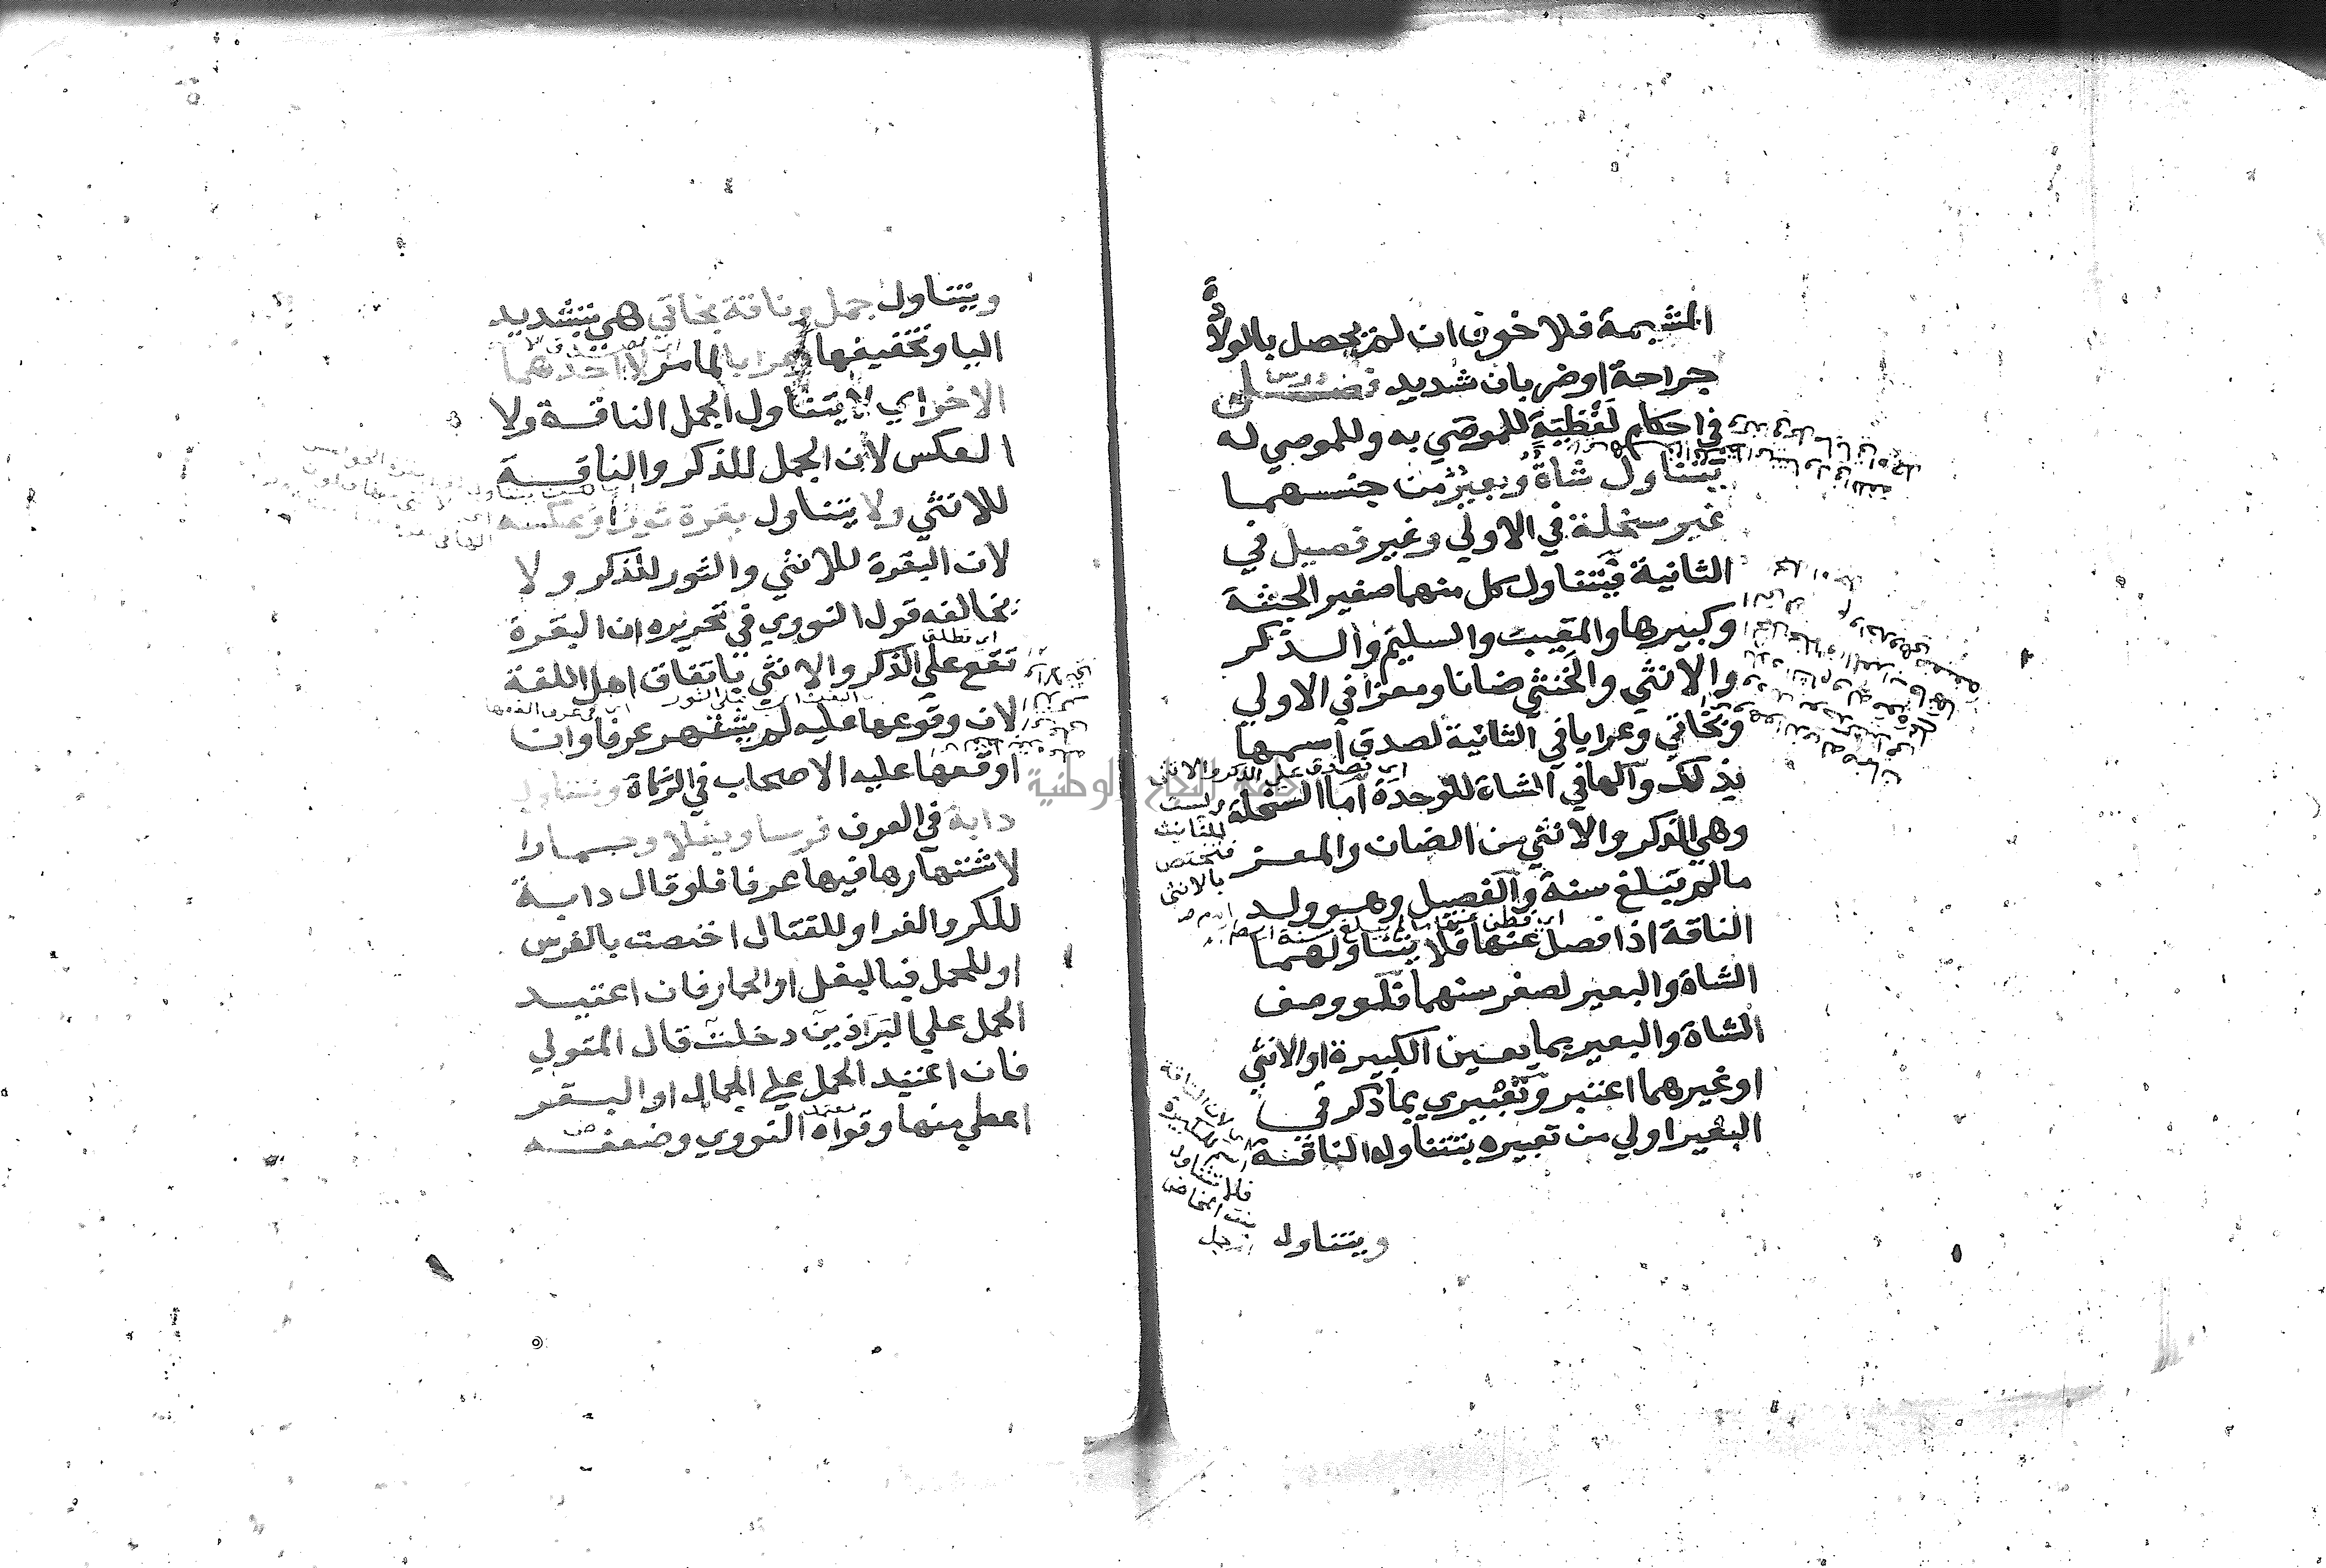 المشيمة فلا خوف ان لم يحصل بالولادة
جراحة او ضربان شديد فصل
في احكام لفظية للموصي به وللموصي له
يتناول شاة وبعير من جنسهما
غير سخلة في الاولي وغير فصيل في
الثانية فيتناول كل منهما صغير الجثة
وكبيرها والمعيب والسليم والذكر
والانثي والخنثي ضانا ومعزا في الاولي
وبخاتي وعرابا في الثانية لصدق اسمهما
بذلك والها في الشاة للوحدة اما السخلة
وهي الذكر والانثي من الضان والمعز
مالم يبلغ سنة والفصيل وهو ولد
الناقة اذا فصل عنها فلا يتناولهما
الشاة والبعير لصغر سنهما فلو وصف
الشاة والبعير بما يعين الكبيرة او الانثي
او غيرهما اعتبر وتعبيري بما ذكر في
البعير اولي من تعبيره بتناوله الناقة
ويتناول
اي تصدق علي الذكر والانثي
وليست
للتانيث
فتختص
بالانثي
لان الناقة
اسم للكبيرة
فلا تتناول
بنت المخاض
ويتناول جمل وناقة بخاتي هي بتشديد
اليا وتخفيفها وعرابا لما مر لا احدهما
الاخر اي لا يتناول الجمل الناقة ولا
العكس لان الجمل للذكر والناقة
للانثي ولا يتناول بقرة ثورا وعكسه
لان البقرة للانثي والثور للذكر ولا
يخالفه قول النووي في تحريره ان البقرة
تقع علي الذكر والانثي باتفاق اهل اللغة
لان وقوعها عليه لم يشتهر عرفا وان
اوقعها عليه الاصحاب في الزكاة ويتناول
دابة في العرف فرسا وبغلا وحمارا
لاشتهارها فيها عرفا فلو قال دابة
للكر والفر او للقتال اختصت بالفرس
او للحمل فبالبغل او الحمار فان اعتيد
الحمل علي البراذين دخلت قال المتولي
فان اعتيد الحمل علي الجمال او البقر
اعطي منها وقواه النووي وضعفه
اي تطلق
اي في عرف الفقها